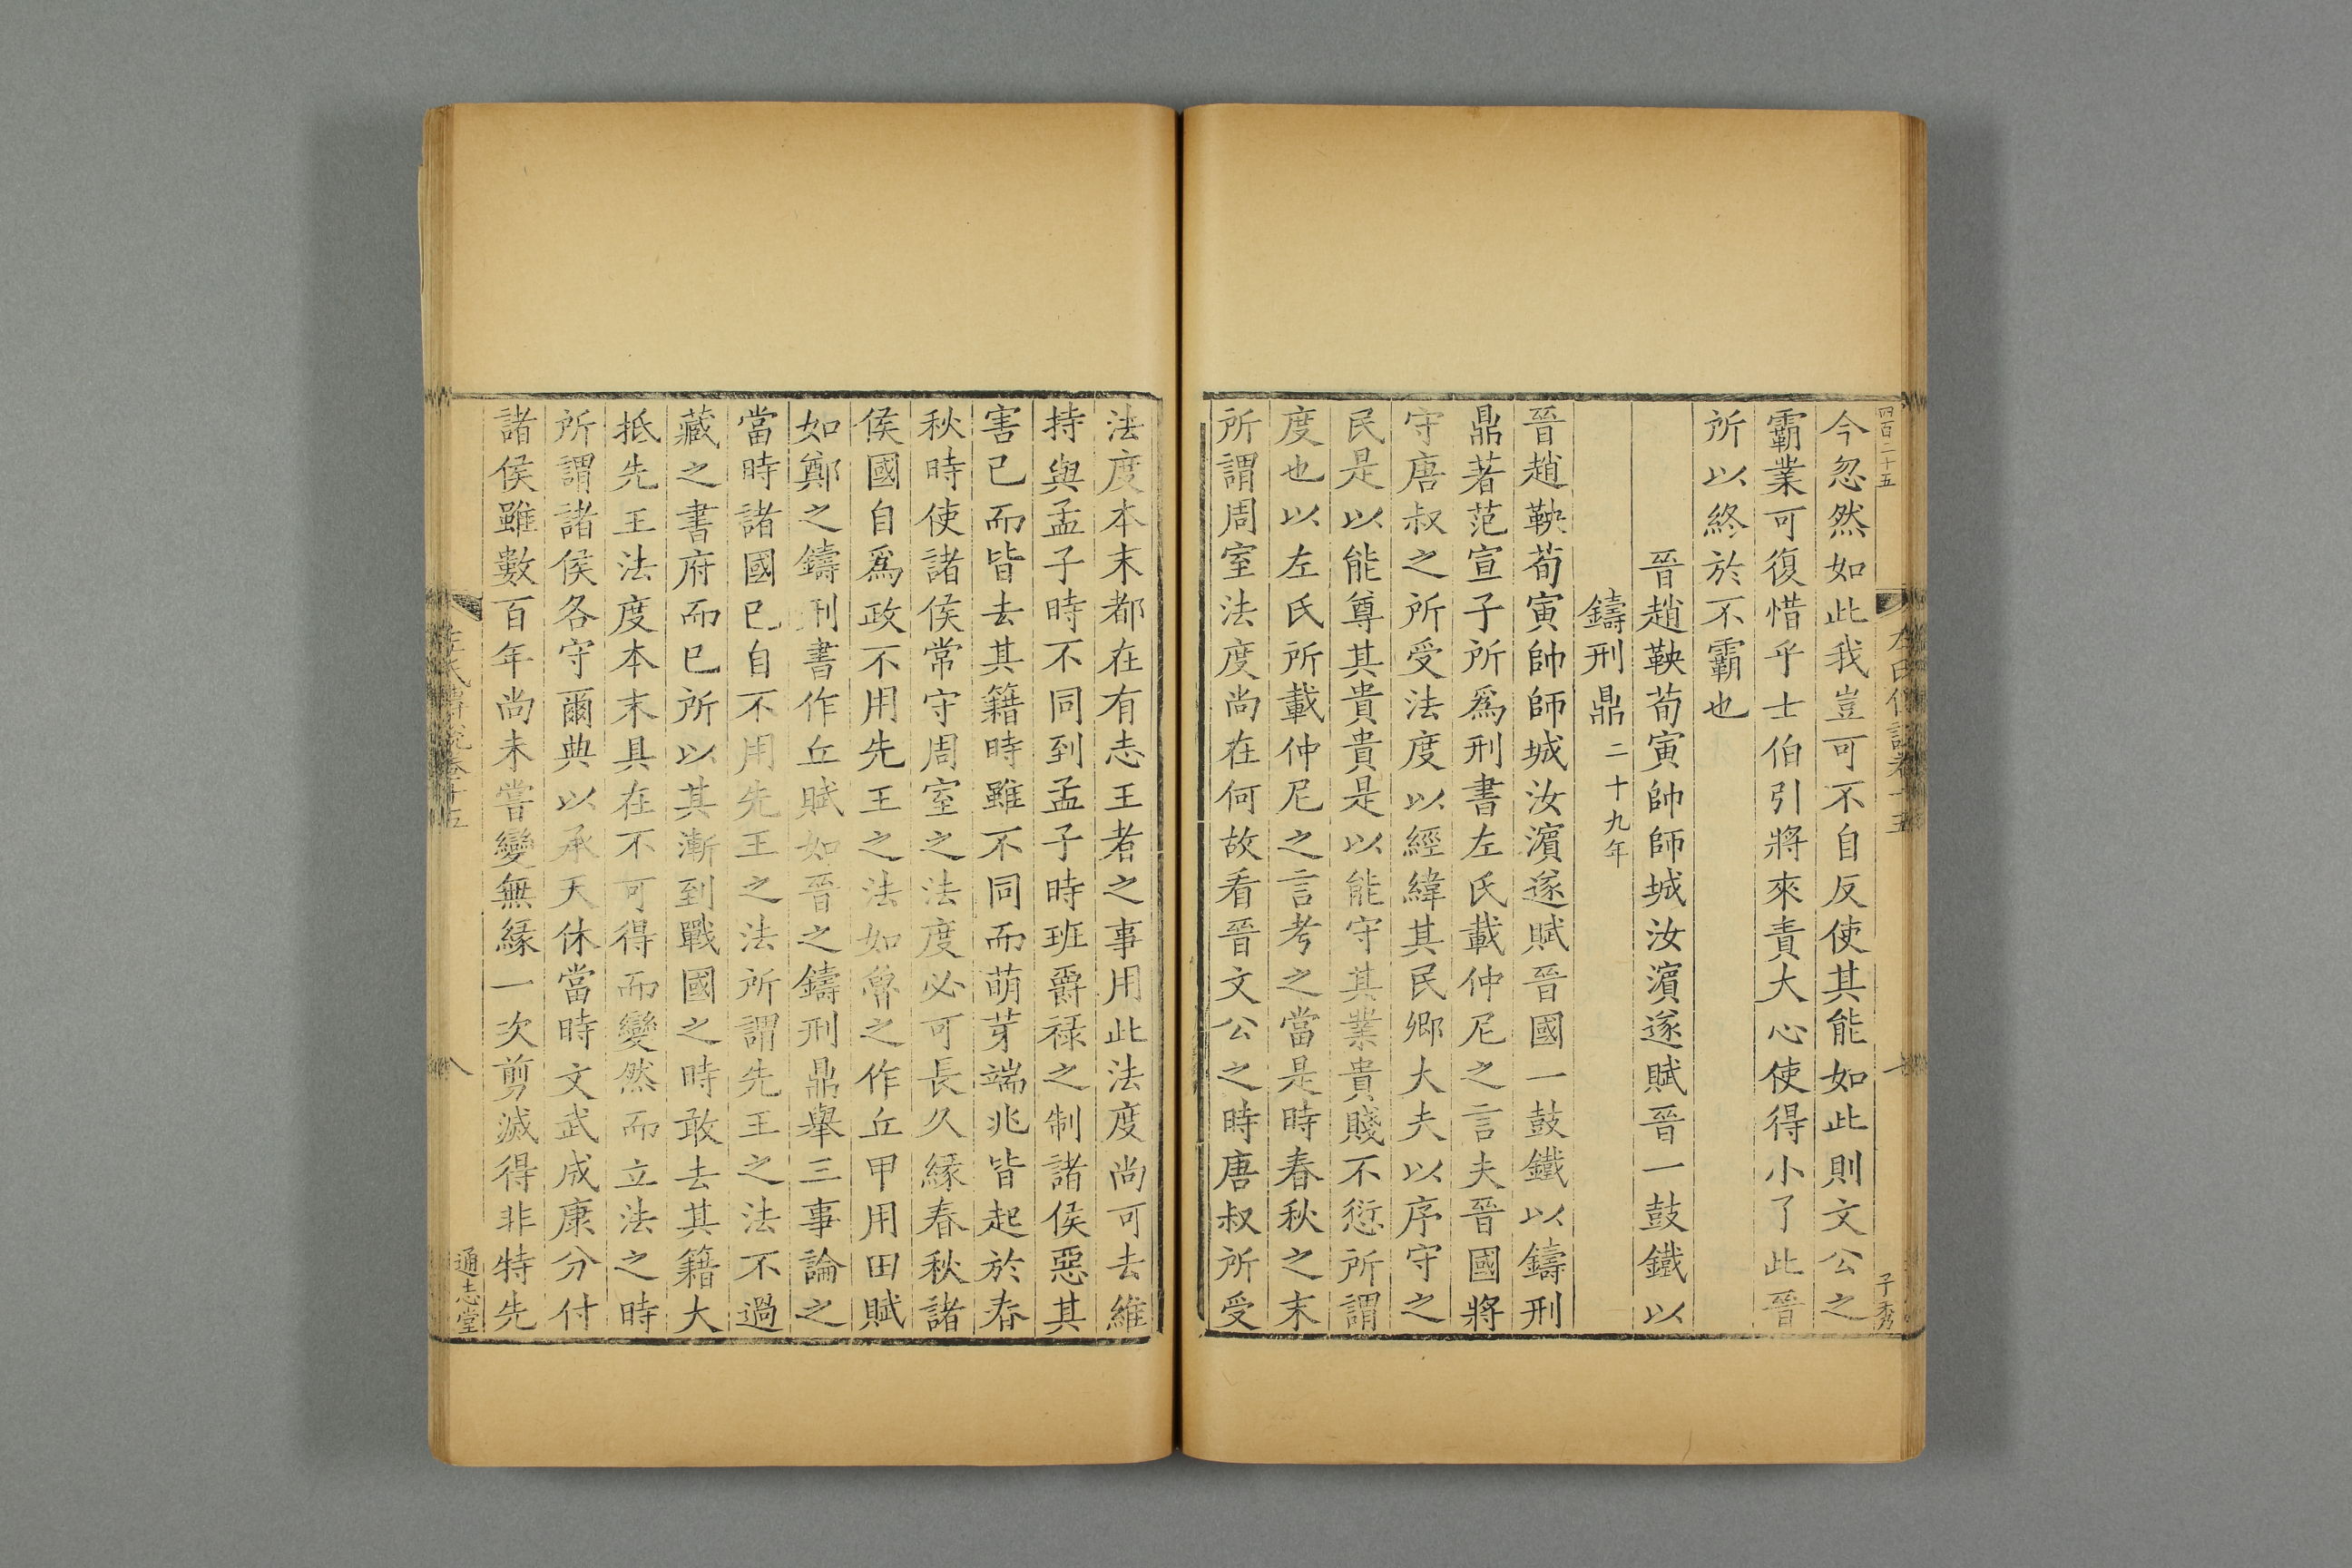 四百二十五
今忽然如此我豈可不自反使其能如此則文公之
霸業可復惜乎士伯引將來責大心使得小了此晉
所以終於不霸也
晉趙鞅荀寅帥師城汝濵遂賦晉一鼓鐵以
鑄刑鼎二十九年
晉趙鞅荀寅帥師城汝濵遂賦晉國一鼓鐵以鑄刑
鼎著范宣子所爲刑書左氏載仲尼之言夫晉國將
守唐叔之所受法度以經緯其民卿大夫以序守之
民是以能尊其貴貴是以能守其業貴賤不愆所謂
度也以左氏所載仲尼之言考之當是時春秋之末
所謂周室法度尚在何故看晉文公之時唐叔所受
子秀
法度本末都在有志王者之事用此法度尚可去維
持與孟子時不同到孟子時班爵禄之制諸侯惡其
害已而皆去其籍時雖不同而萌芽端兆皆起於春
秋時使諸侯常守周室之法度必可長久緣春秋諸
侯國自爲政不用先王之法如魯之作丘甲用田賦
如鄭之鑄刑書作丘賦如晉之鑄刑鼎舉三事論之
當時諸國已自不用先王之法所謂先王之法不過
藏之書府而已所以其漸到戰國之時敢去其籍大
抵先王法度本末具在不可得而變然而立法之時
所謂諸侯各守爾典以承天休當時文武成康分付
諸侯雖數百年尚未嘗變無緣一次剪滅得非特先
左氏傳說卷十五
八
通志堂